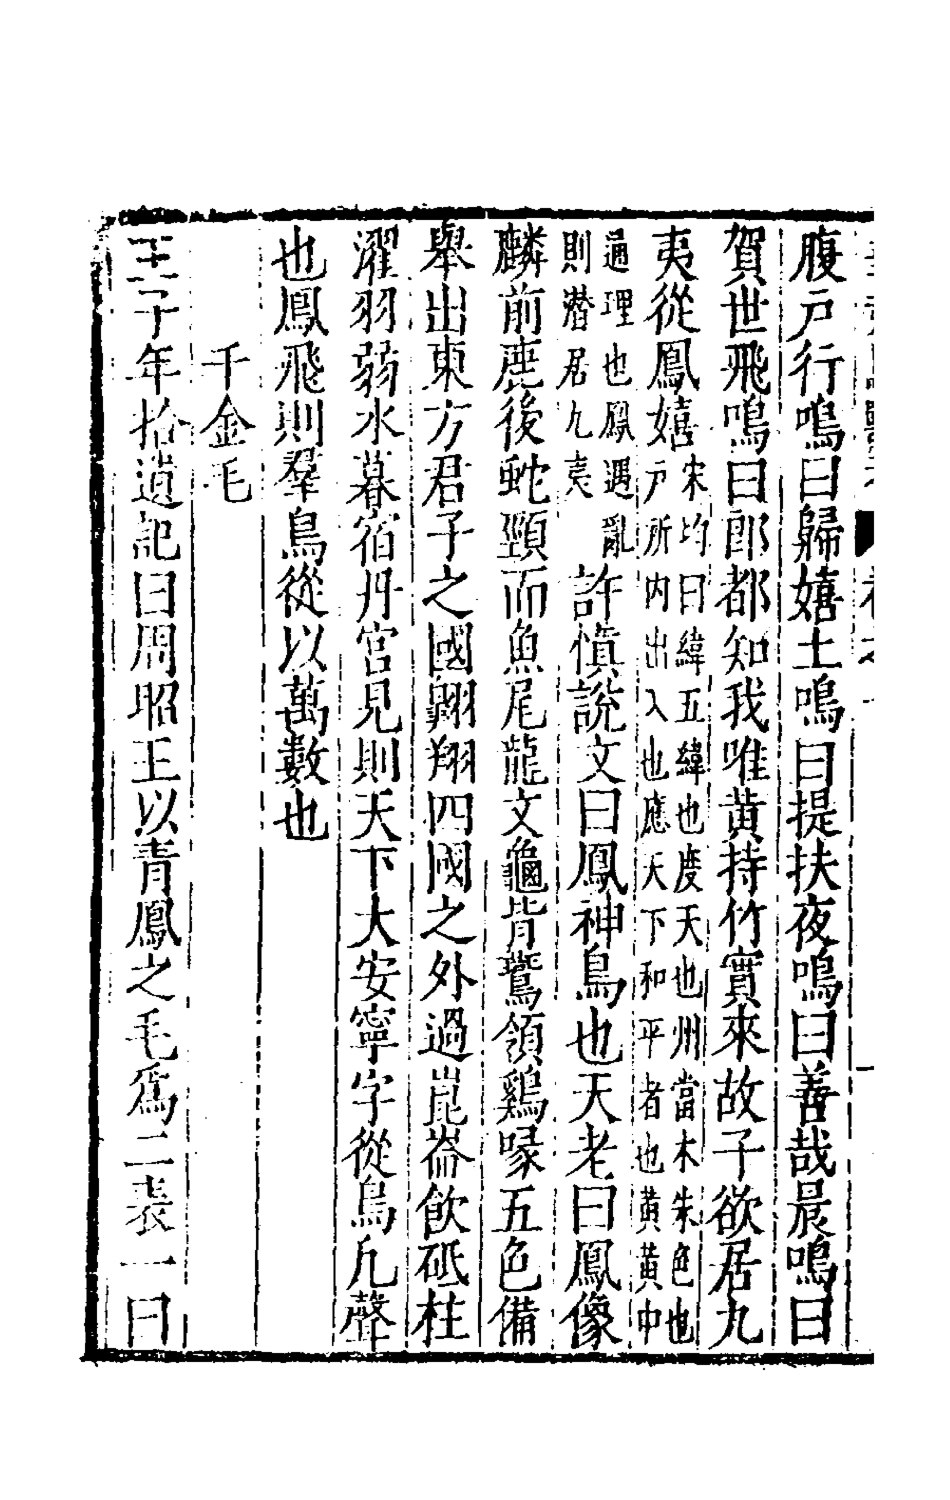 腹戶行鳴曰歸嬉土鳴曰提扶夜鳴曰善哉晨鳴曰
賀世飛鳴曰郎都知我唯黃持竹實來故子欲居九
夷從鳳嬉
宋均曰緯五緯也度天也州當木朱色也
戶所內出入也應天下和平者也黃黃中
通理也鳳遇亂
則潜居九夷
許慎說文曰鳳神鳥也天老曰鳳像
麟前鹿後蛇頸而魚尾龍文龜背鷰頷鷄喙五色備
舉出東方君子之國翺翔四國之外過崑崙飲砥柱
濯羽弱水暮宿丹宮見則天下大安寧字從鳥凡聲
也鳳飛則羣鳥從以萬數也
千金毛
王子年拾遺記曰周昭王以青鳳之毛爲二裘一曰